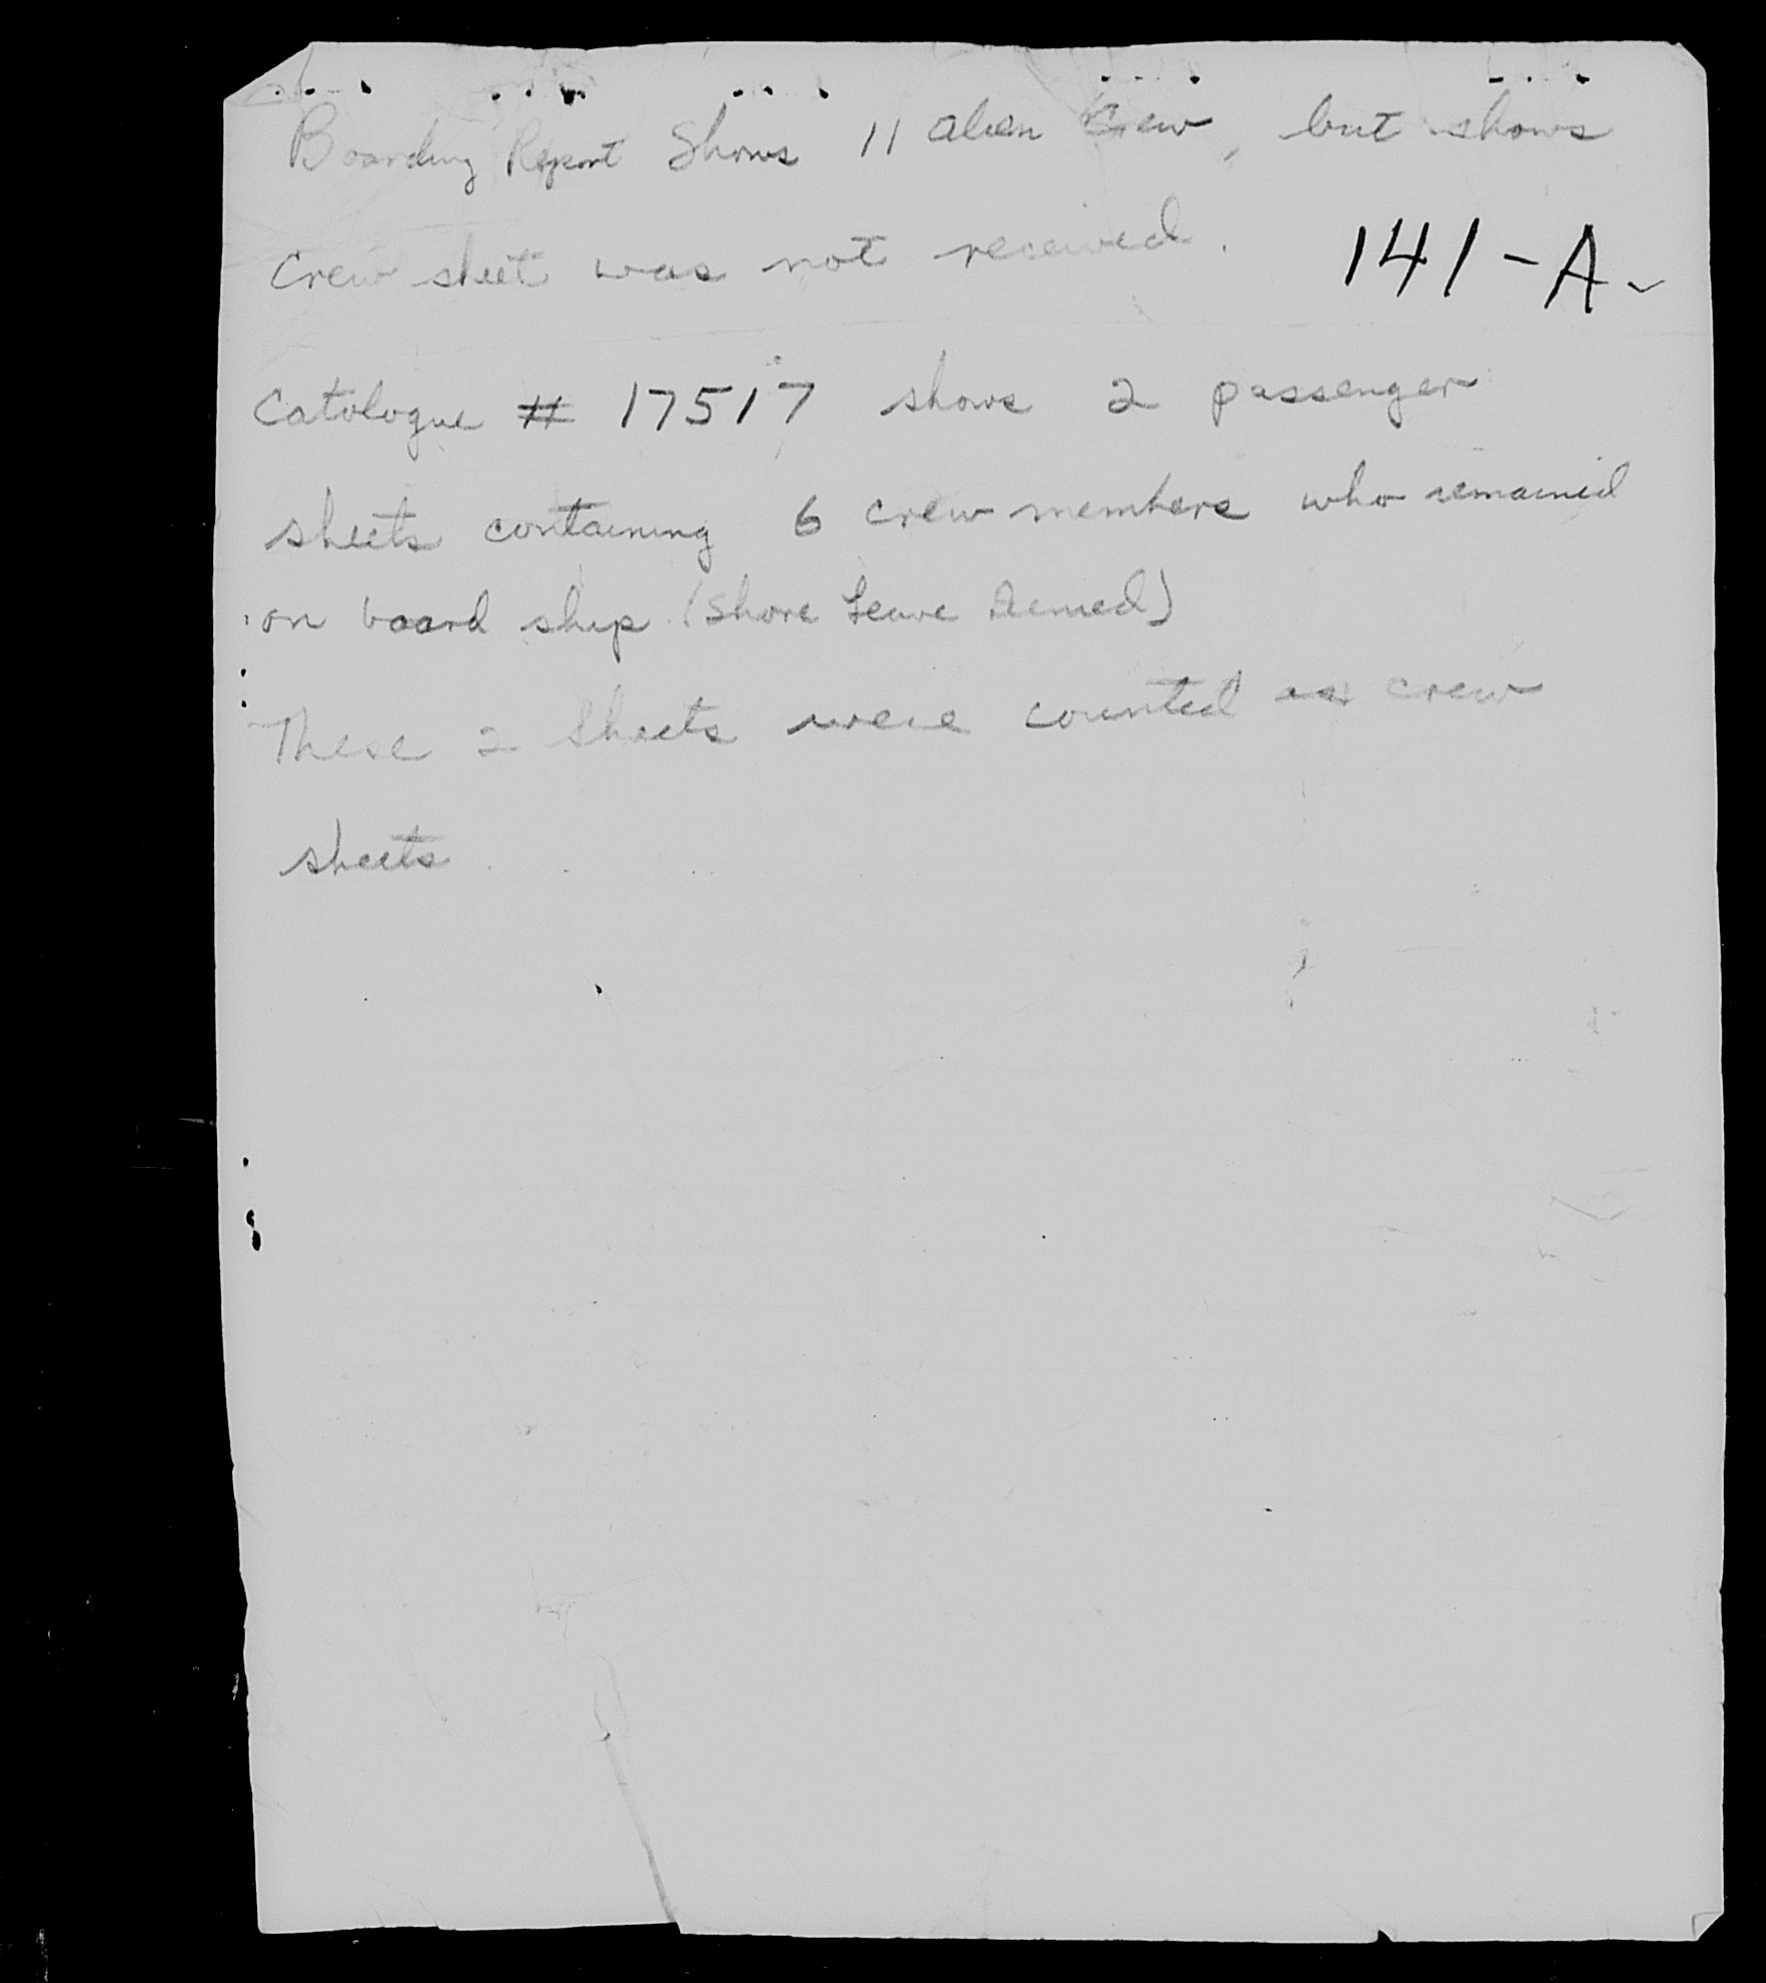 Boarding Report Shows 11 alien Crew, but shows
crew sheet was not received.
141-A-
Catologue # 17517 shows 2 passenger
sheets containing 6 crew members who remained
on board ship (Shore Leave Denied)
These 2 Sheets were counted as crew
sheets.